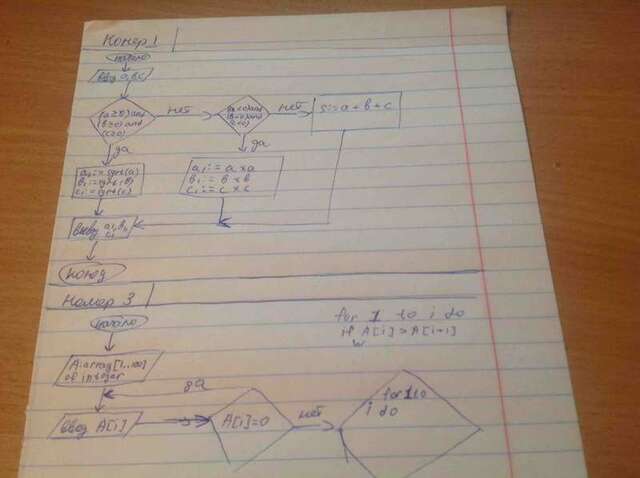 Номер 1
начало
ввод a,b,c
(a≥0) and
(b≥0) and
(c≥0)
нет
нет
s:=a+b+c
да
да
a1:=sqrt(a)
b1:=sqrt(b)
c1:=sqrt(c)
a1:=a×a
b1:=b×b
c1:=c×c
вывод a1,b1,
c1
конец
Номер 3
начало
for 1 to i do
if A[i]>A[i+1]
A:array[1..100]
of integer
да
ввод A[i]
A[i]=0
нет
for 1 to
i do